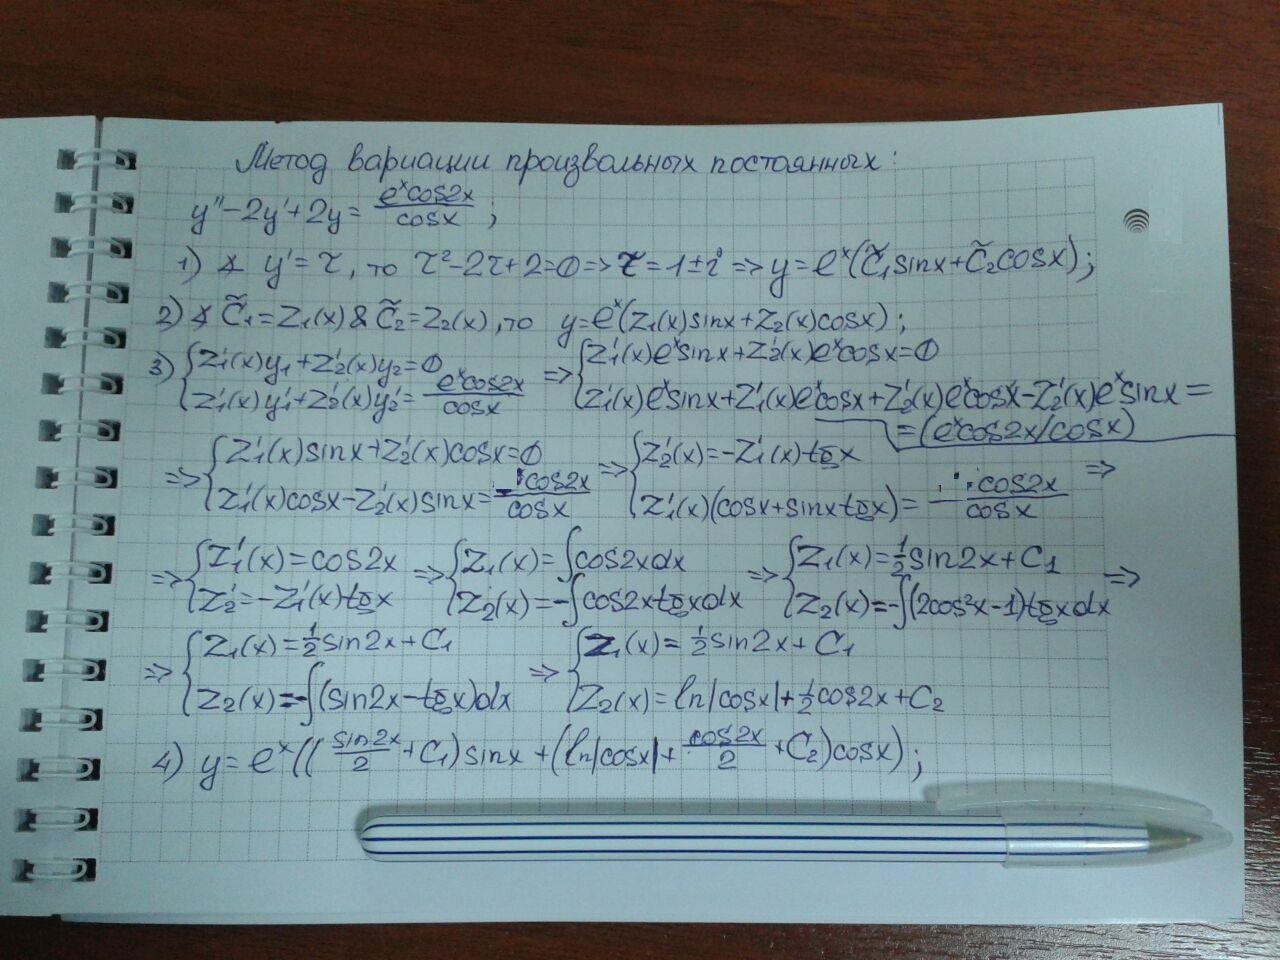 Метод вариации произвольных постоянных:
y''-2y'+2y= e^x cos2x / cosx ;
1) ∡ y'=τ, то τ²-2τ+2=0=>τ=1±i=>y=e^x(C̃₁sinx+C̃₂cosx);
2) ∡ C̃₁=Z₁(x) & C̃₂=Z₂(x), то y=e^x(Z₁(x)sinx+Z₂(x)cosx);
3) { Z₁'(x)y₁+Z₂'(x)y₂=0 => { Z₁'(x)e^x sinx+Z₂'(x)e^x cosx=0
Z₁'(x)y₁'+Z₂'(x)y₂'= e^x cos2x / cosx Z₁'(x)e^x sinx+Z₁'(x)e^x cosx+Z₂'(x)e^x cosx-Z₂'(x)e^x sinx=
=(e^x cos2x/cosx)
=> { Z₁'(x)sinx+Z₂'(x)cosx=0 => { Z₂'(x)=-Z₁'(x)tgx =>
Z₁'(x)cosx-Z₂'(x)sinx= cos2x / cosx Z₁'(x)(cosx+sinxtgx)= cos2x / cosx
=> { Z₁'(x)=cos2x => { Z₁(x)=∫cos2xdx => { Z₁(x)=½sin2x+C₁ =>
Z₂'=-Z₁'(x)tgx Z₂(x)=-∫cos2xtgxdx Z₂(x)=-∫(2cos²x-1)tgxdx
=> { Z₁(x)=½sin2x+C₁ => { Z₁(x)=½sin2x+C₁
Z₂(x)=-∫(sin2x-tgx)dx Z₂(x)=ln|cosx|+½cos2x+C₂
4) y=e^x((sin2x / 2 +C₁)sinx+(ln|cosx|+ cos2x / 2 +C₂)cosx);